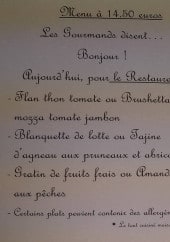 Menu à 14.50 euros
Les Gourmands disent...
Bonjour !
Aujourd'hui, pour le Restaure
- Flan thon tomate ou Brushetta
mozza tomate jambon
- Blanquette de lotte ou Tajine
d'agneau aux pruneaux et abrico
- Gratin de fruits frais ou Amand
aux pêches
- Certains plats peuvent contenir des allergèn
* Le tout cuisiné mais